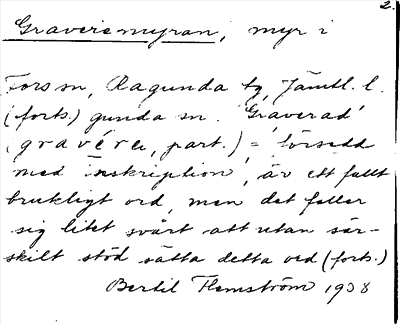 2.
Graveremyran, myr i
Fors sn, Ragunda tg, Jämtl. l.
(forts.) gunda sn. 'Graverad'
(gravéra, part.) = 'försedd
med inskription', är ett fullt
brukligt ord, men det faller
sig litet svårt att utan sär-
skilt stöd sätta detta ord (forts.)
Bertil Flemström 1938